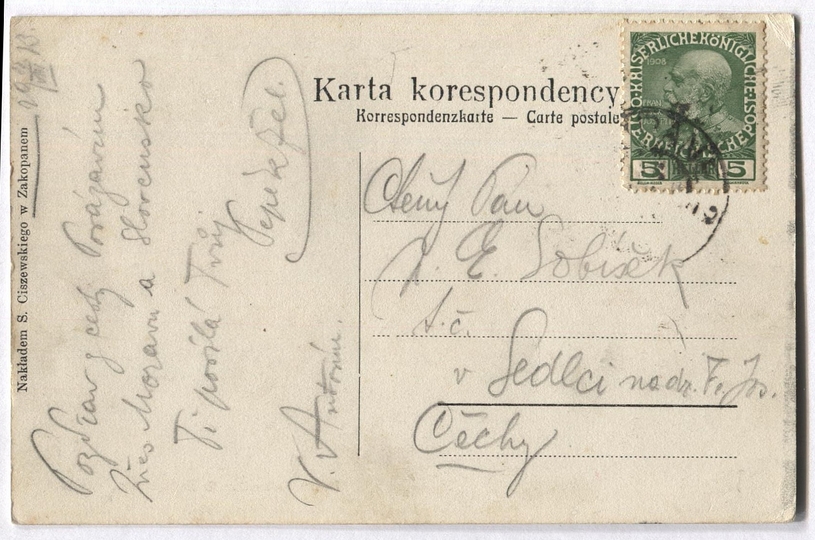 Karta korespondency
Korrespondenzkarte — Carte postale
KAISERLICHE KÖNIGLICHE
1908
5 5
Nakładem S. Ciszewskiego w Zakopanem
Pozdrav z cesty
přes Moravu a Slovensko
Ti posílá Tvůj
Pepek
V. Antonín.
Ctěný Pan
p. E. Sobíšek
t.č.
v Sedlci nádr. F. Jos.
Čechy